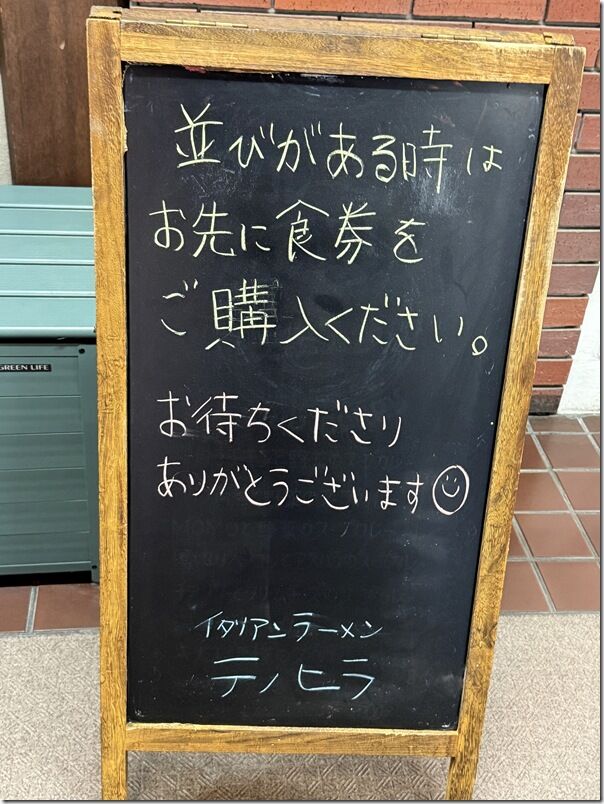 並びがある時は
お先に食券を
ご購入ください。
GREEN LIFE
お待ちくださり
ありがとうございます☺
イタリアンラーメン
テノヒラ